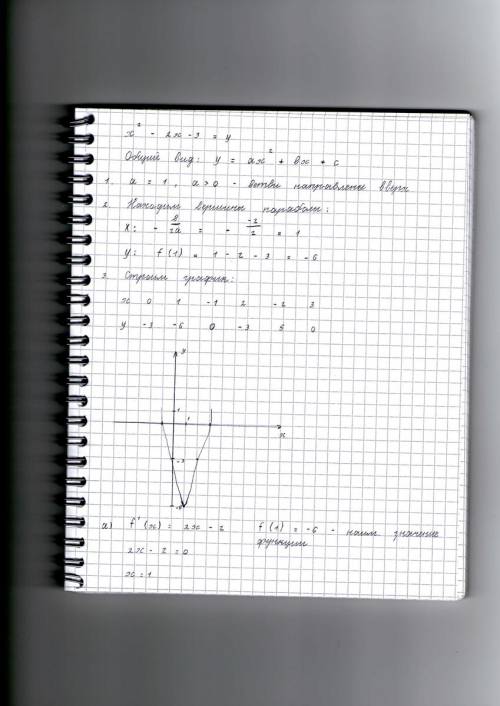 x² - 2x - 3 = y
Общий вид: y = ax² + bx + c
1. a = 1, a > 0 - ветви направлены вверх
2. Находим вершины параболы:
x: - b/2a = - -2/2 = 1
y: f(1) = 1 - 2 - 3 = -6
3. Строим график:
x 0 1 -1 2 -2 3
y -3 -6 0 -3 5 0
y
1
1
x
-3
а) f'(x) = 2x - 2 f(1) = -6 - наим. значение
функции
2x - 2 = 0
x = 1